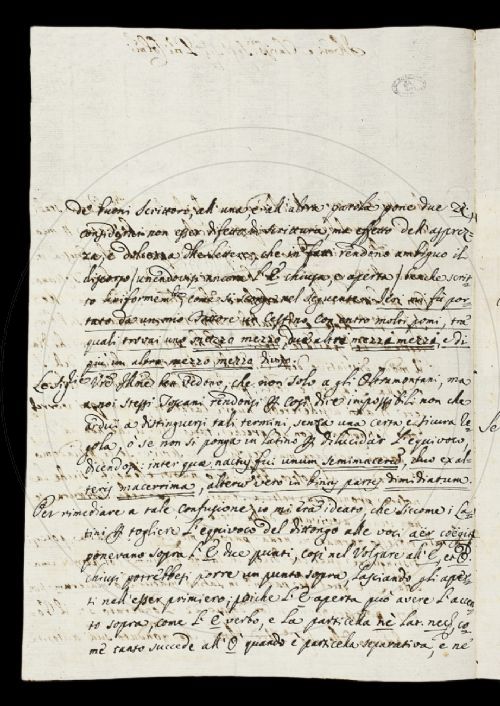 de' buoni Scrittori, all'una, e all'altra parola pone due Z;
consideri non esser difetto di scrittura, ma effetto dell'asprez-
za, e dolcezza delle lettere, che in fatti rendono ambiguo il
discorso (unendovisi ancora l'E chiusa, e aperta) benche scrit-
to uniformemte come si scorge nel seguente. Ieri mi fù por-
tato da un mio Fattore un Cestino con entro molti pomi, trà
quali trovai uno mezzo mezzo, due altre mezza mezza, e di
più un altro mezzo mezzo
Le Sig.rie V're Ill'me ben vedono, che non solo a gli Oltramontani, ma
a noi stessi Toscani rendonsi p così dire impossibili non che
ardui a distinguersi tali termini, senza una certa e sicura re-
gola, o se non si ponga in latino p dilucidar l'equivoco,
dicendosi: inter quæ nactus fui unum semimacerum, duo ex al-
teris macerrima, alterum vero in binas partes dimidiatum.
Per rimediare a tale confusione, io mi era ideato, che siccome i La-
tini p togliere l'equivoco del dittongo alle voci aër coëgit
ponevano sopra l'E due punti, così nel Volgare all'E, et O
chiusi potrebbesi porre un punto sopra, lasciando gli aper-
ti nell'esser primiero; poiche l'E aperta può avere l'accen-
to sopra, come l'È verbo, e la particella nè lat. nec, co-
me tanto succede all'O quando è particella separativa, e nè